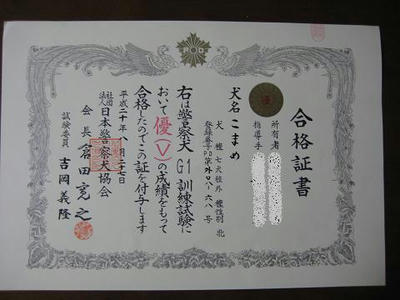 合格証書
所有者
指導手
犬名 こまめ
犬種 七犬種外 種性別 北
登録番号 PD第外ロ八-六八号
右は警察犬G1訓練試験に
おいて優(V)の成績をもって
合格したのでこの証を付与します
平成二十年八月二十七日
社団法人 日本警察犬協会
会長
試験委員 吉岡義隆